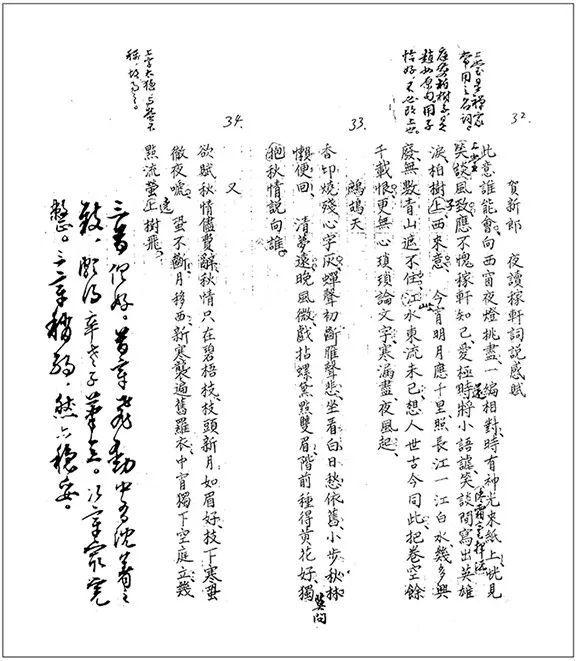 32.
賀新郎 夜讀稼軒詞說感賦
此意誰能會、向西窗夜燈挑盡、一編相對、時有神光來紙上、恍見
笑談風致、應不愧稼軒知己、愛極時將小語謔、笑談間寫出英雄
淚、柏樹上、西來意 今宵明月應千里、照長江一江白水、幾多興
廢、無數青山遮不住、江水東流未已、想人世古今同此、把卷空餘
千載恨、更無心瑣瑣論文字、寒漏盡、夜風起、
上堂是禪家
常用之名詞。
上堂
子
庭前柏樹子是
趙州原句、用子
恰好、不必改上也。
33.
鷓鴣天
香印燒殘心字灰、蟬聲初斷雁聲悲、坐看白日愁依舊、小步秋林
懶便回 清夢遠、晚風微、戲拈螺黛點雙眉、階前種得黃花好、獨
抱秋情說向誰、
莫問
34.
又
欲賦秋情儘費辭、秋情只在碧梧枝、枝頭新月如眉好、枝下寒蛩
徹夜噓 蛩不斷、月移西、新寒襲遍舊羅衣、中宵獨下空庭立、幾
點流螢上樹飛、
遶
上字太穩、與螢不
稱、故易之。
三首俱好。首章飛動中有沈著之
致、頗得辛老子筆意。次章最完
整。三章稍弱、然亦穩妥。